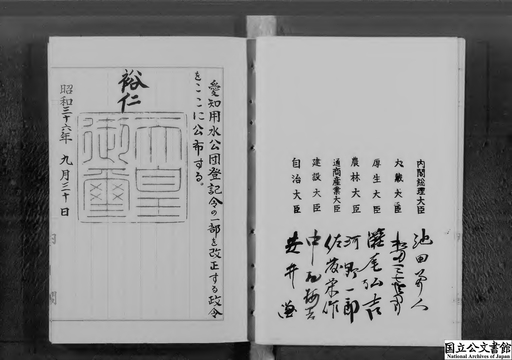 愛知用水公団登記令の一部を改正する政令
をここに公布する。
裕仁
天皇
御璽
昭和三十六年九月三十日
内閣総理大臣 池田勇人
大蔵大臣
厚生大臣 灘尾弘吉
農林大臣 河野一郎
通商産業大臣 佐藤栄作
建設大臣 中村梅吉
自治大臣 安井謙
国立公文書館
National Archives of Japan